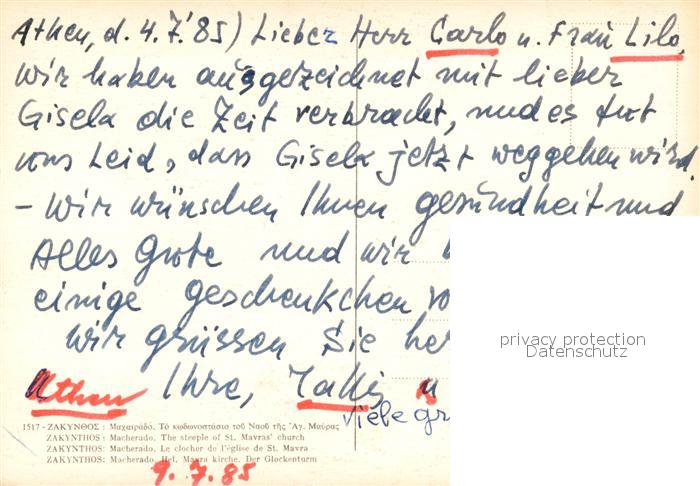 Athen, d. 4.7.'85) Lieber Herr Carlo u. Frau Lilo,
wir haben ausgezeichnet mit lieber
Gisela die Zeit verbracht, und es tut
uns Leid, dass Gisela jetzt weggehen wird.
- Wir wünschen Ihnen gesundheit und
Alles Grote und wir
einige geschenkchen
Wir grüssen Sie her
Athen Ihre, u
viele gr
privacy protection
Datenschutz
1517 - ΖΑΚΥΝΘΟΣ : Μαχαιράδο. Τὸ κωδωνοστάσιο τοῦ Ναοῦ τῆς Ἁγ. Μαύρας
ZAKYNTHOS: Macherado. The steeple of St. Mavras' church
ZAKYNTHOS: Macherado. Le clocher de l'église de St. Mavra
ZAKYNTHOS: Macherado. Hel. Mavra kirche. Der Glockenturm
9.7.85